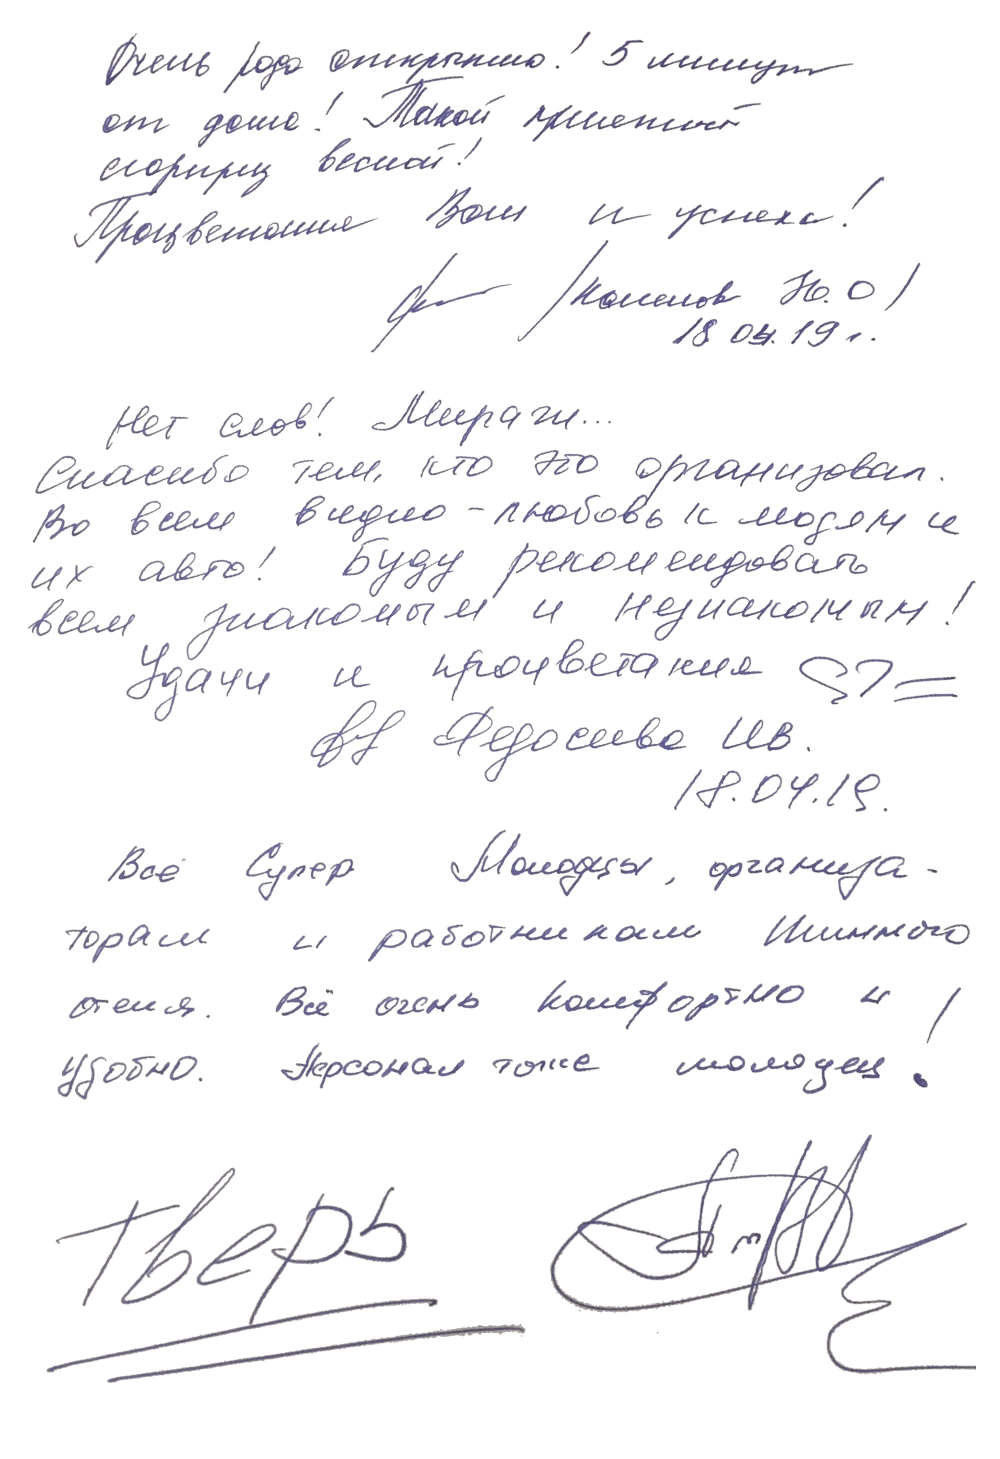 Очень рада открытию! 5 минут
от дома! Такой приятный
сюрприз весной!
Процветания Вам и успеха!
Ю. О /
18 04. 19 г.
Нет слов! Мираж...
Спасибо тем, кто это организовал.
Во всем видно - любовь к людям и
их авто! Буду рекомендовать
всем знакомым и незнакомым!
Удачи и процветания
Федосеева И.В.
18.04.19.
Всё Супер Молодцы, организа-
торам и работникам Шинного
отеля. Всё очень комфортно и
удобно. Персонал тоже молодец!
Тверь